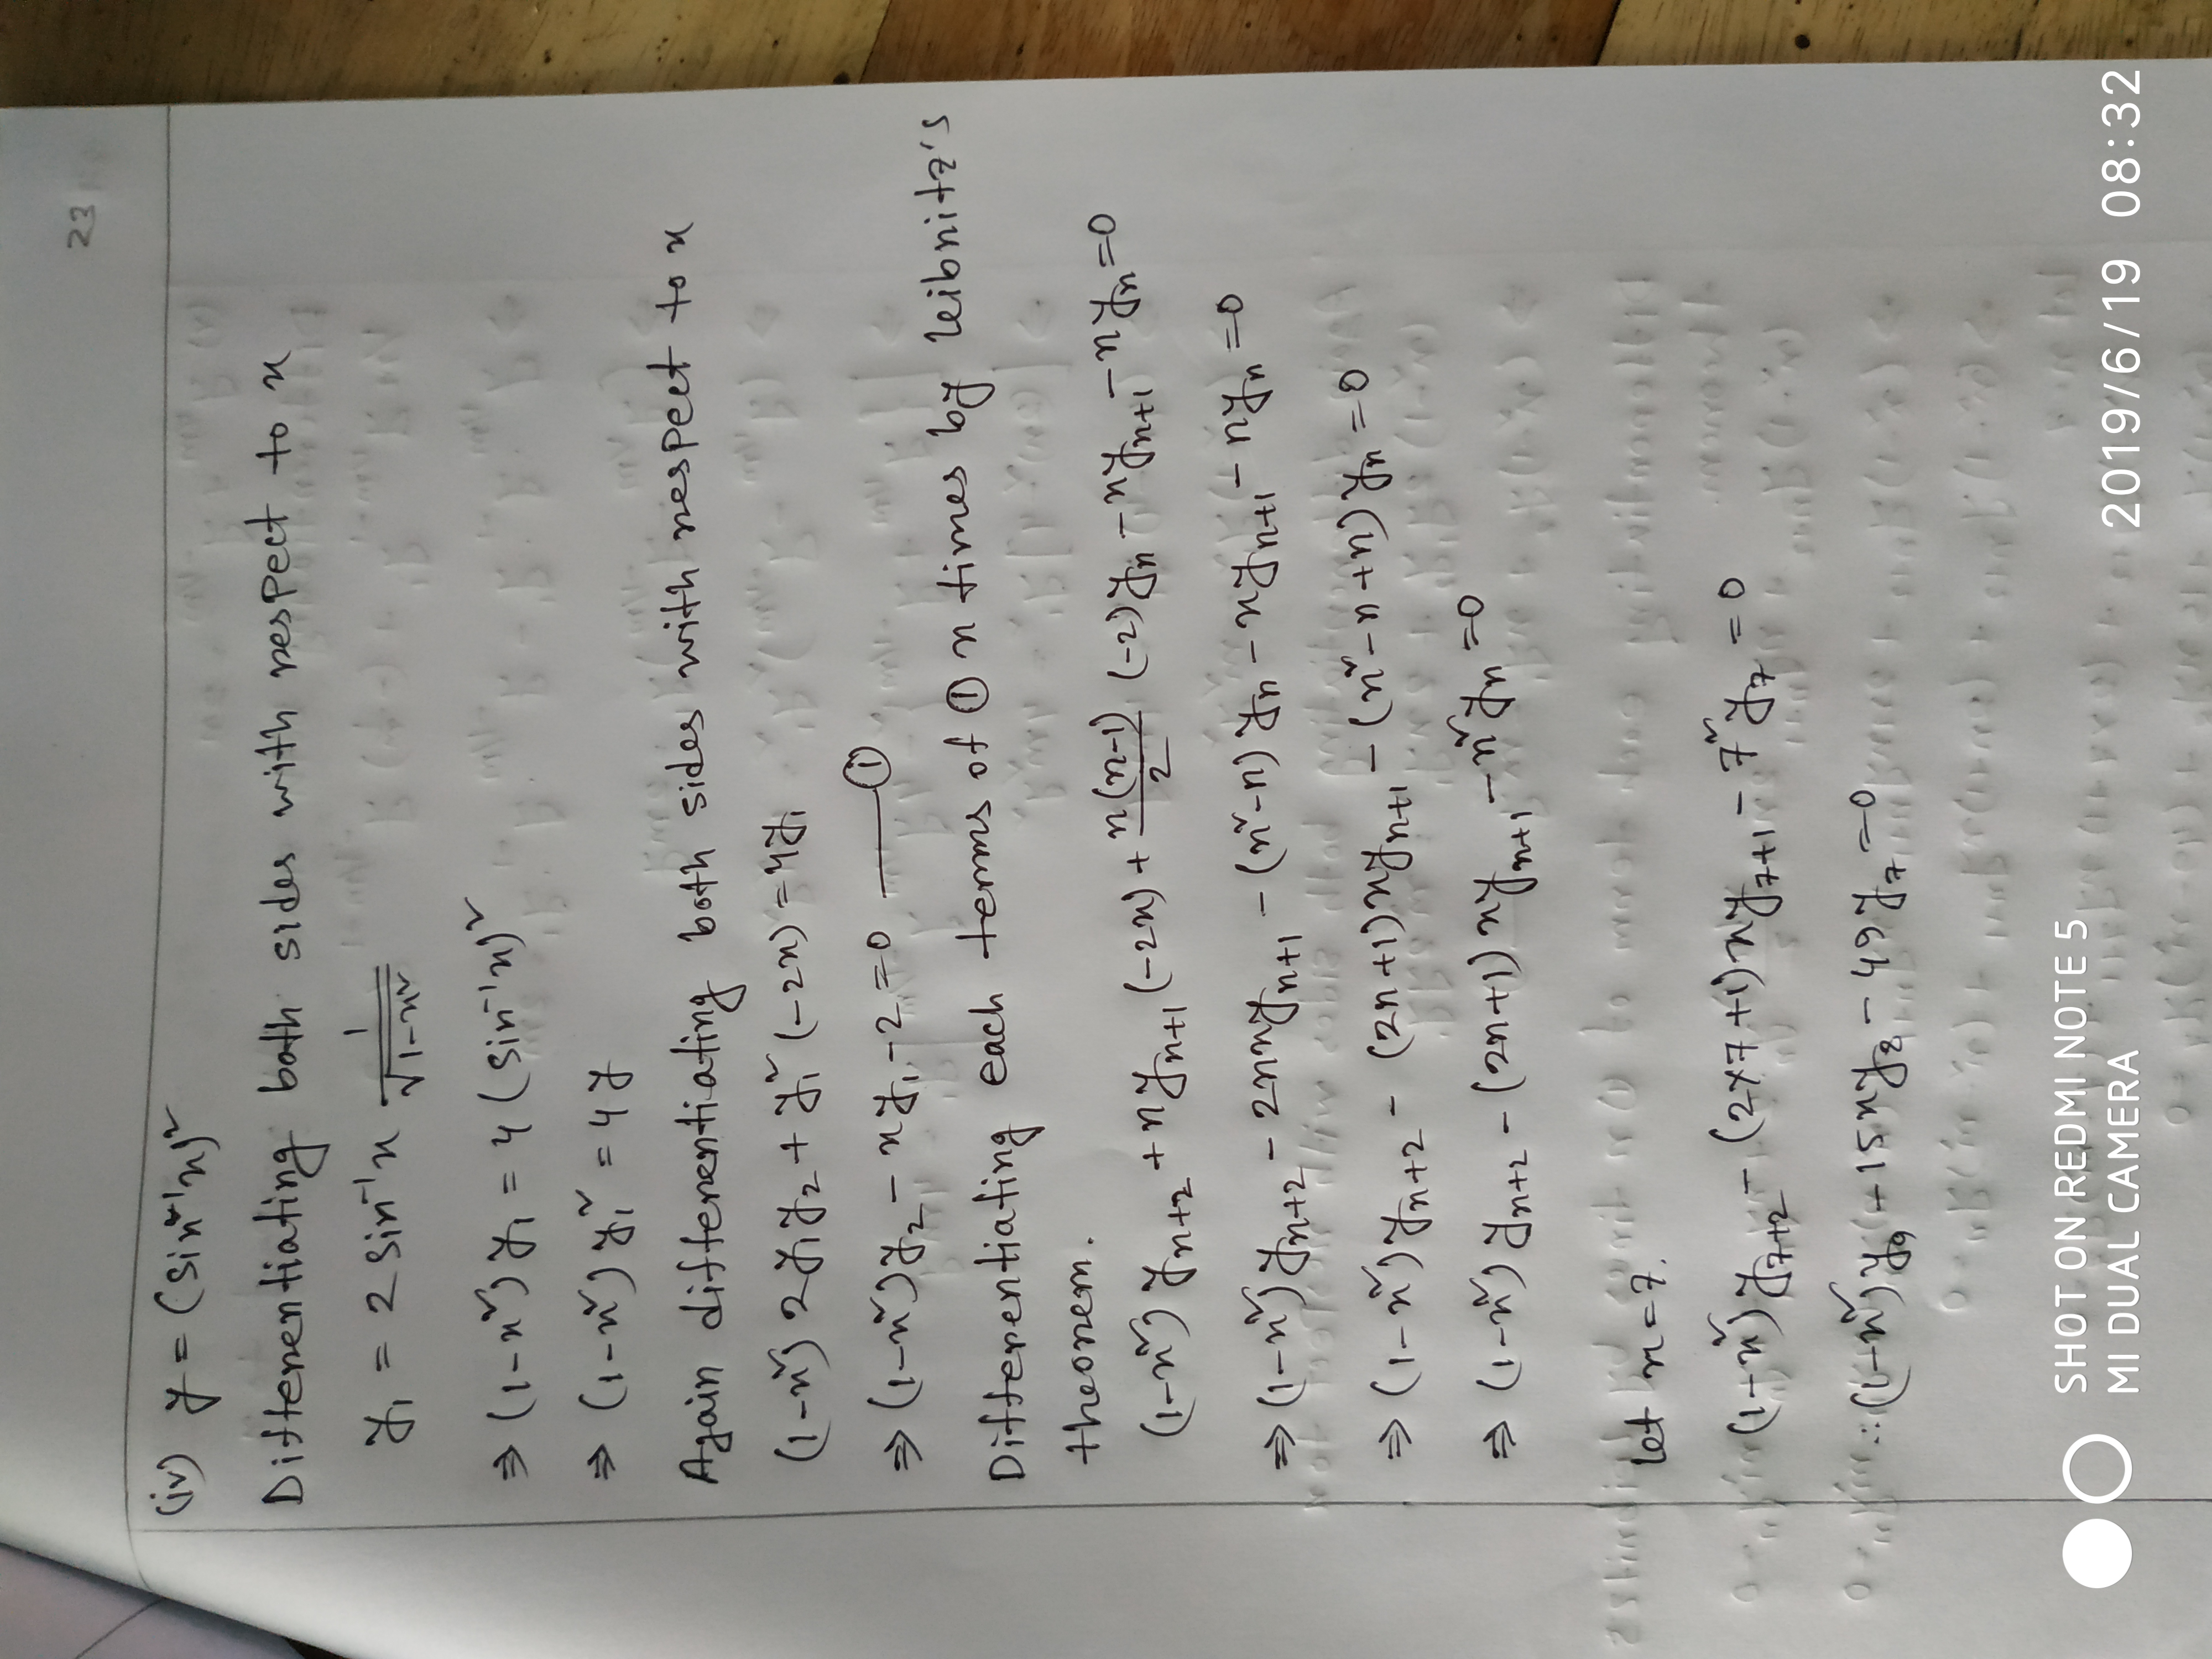 23
(iv) y = (sin⁻¹x)²
Differentiating both sides with respect to x
y₁ = 2 sin⁻¹x 1/√(1-x²)
⇒ (1-x²) y₁ = 4 (sin⁻¹x)²
⇒ (1-x²) y₁² = 4y
Again differentiating both sides with respect to x
(1-x²) 2y₁y₂ + y₁² (-2x) = 4y₁
⇒ (1-x²)y₂ - xy₁ - 2 = 0 —— ①
Differentiating each terms of ① n times by leibnitz's
theorem.
(1-x²) yₙ₊₂ + nyₙ₊₁ (-2x) + n(n-1)/2 (-2)yₙ - xyₙ₊₁ - nyₙ = 0
⇒ (1-x²)yₙ₊₂ - 2nxyₙ₊₁ - (n²-n) yₙ - xyₙ₊₁ - nyₙ = 0
⇒ (1-x²)yₙ₊₂ - (2n+1)xyₙ₊₁ - (n²-n+n)yₙ = 0
⇒ (1-x²) yₙ₊₂ - (2n+1) xyₙ₊₁ - n²yₙ = 0
let n = 7.
(1-x²)y₇₊₂ - (2×7+1)xy₇₊₁ - 7²y₇ = 0
∴ (1-x²)y₉ - 15xy₈ - 49y₇ = 0
SHOT ON REDMI NOTE 5
MI DUAL CAMERA
2019/6/19 08:32